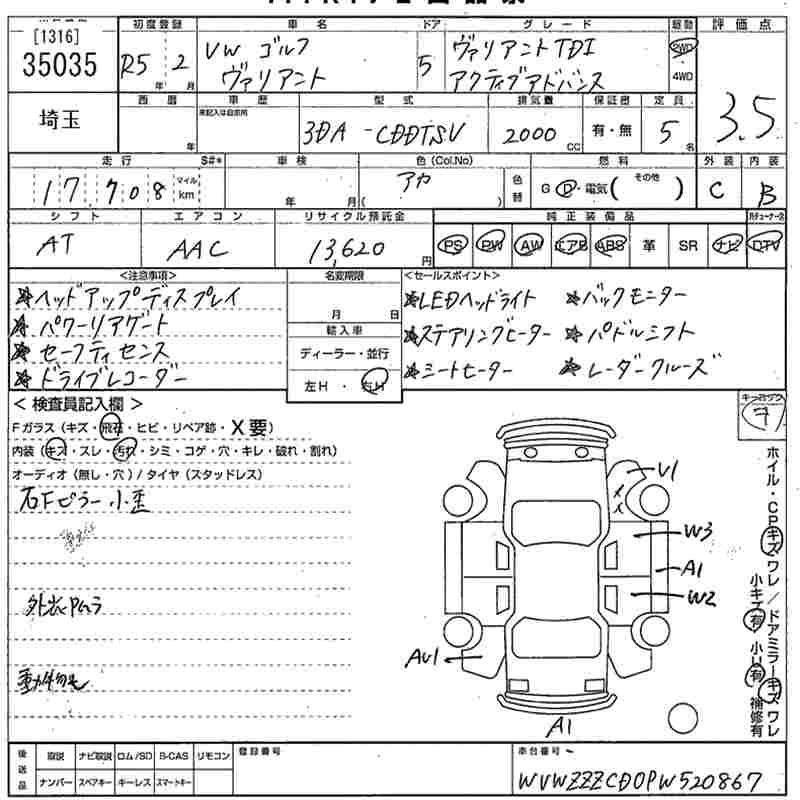 [1316]
35035
埼玉
初度登録 車名 ドア グレード 駆動 評価点
R5年 2月 VW ゴルフ ヴァリアント 5 ヴァリアントTDI アクティブアドバンス 2WD 4WD 3.5
西暦 車歴 型式 排気量 保証書 定員
年 未記入は自家用 3DA-CDDTSV 2000cc 有・無 5名
走行 S#* 車検 色(Col.No) 燃料 外装 内装
17,708 マイル km 年 月 アカ ( ) 色替 G D・電気( その他 ) C B
シフト エアコン リサイクル預託金 純正装備品
AT AAC 13,620円 PS PW AW エアB ABS 革 SR ナビ DTV
<注意事項> 名変期限 <セールスポイント>
★ヘッドアップディスプレイ
★パワーリアゲート
★セーフティセンス
★ドライブレコーダー
月 日
輸入車
ディーラー・並行
左H・右H
★LEDヘッドライト ★バックモニター
★ステアリングヒーター ★パドルシフト
★シートヒーター ★レーダークルーズ
<検査員記入欄>
Fガラス(キズ・飛石・ヒビ・リペア跡・X要)
内装(キズ・スレ・汚れ・シミ・コゲ・穴・キレ・破れ・割れ)
オーディオ(無し・穴)/タイヤ(スタッドレス)
右Fピラー小歪
外装PMラ
V1
W3
A1
W2
AU1
A1
ホイル・CPキズワレ/ドアミラーキズワレ
小キズ有 小U有 補修有
後送品 取説 ナビ取説 ロム/SD B-CAS リモコン 登録番号 車台番号
ナンバー スペアキー キーレス スマートキー WVWZZZCD0PW520867